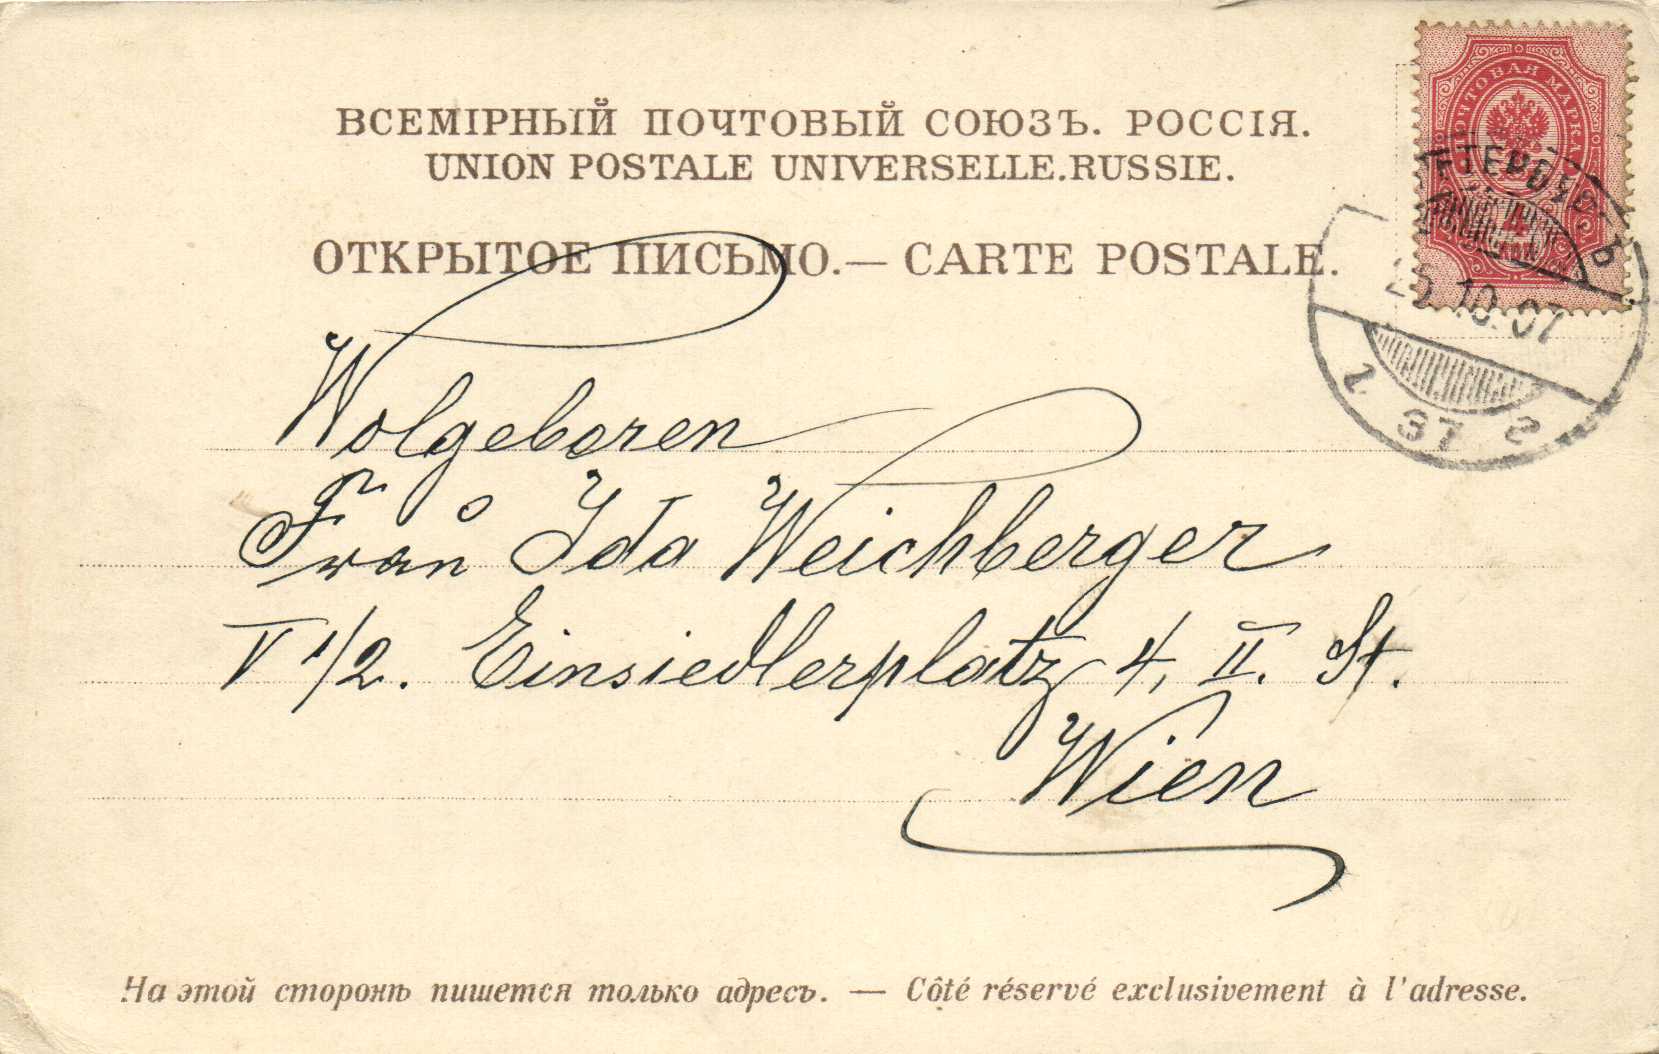 ВСЕМІРНЫЙ ПОЧТОВЫЙ СОЮЗЪ. РОССІЯ.
UNION POSTALE UNIVERSELLE.RUSSIE.
ОТКРЫТОЕ ПИСЬМО.— CARTE POSTALE.
ПОЧТОВАЯ МАРКА
4
10.07
1 37 2
Wolgeboren
Frau Ida Weichberger
V 1/2. Einsiedlerplatz 4, II. St.
Wien
На этой сторонѣ пишется только адресъ. — Côté réservé exclusivement à l'adresse.